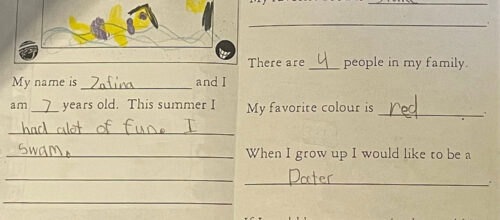 My name is Zafina and I
am 7 years old. This summer I
had alot of fun. I
swam.
There are 4 people in my family.
My favorite colour is red.
When I grow up I would like to be a
Docter.